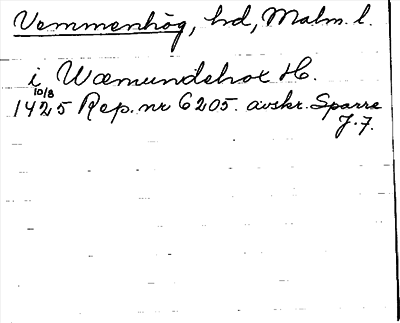 Vemmenhög, hd, Malm. l.
i Wæmundehox H.
10/8
1425 Rep. nr 6205. avskr. Sparre
J. 7.